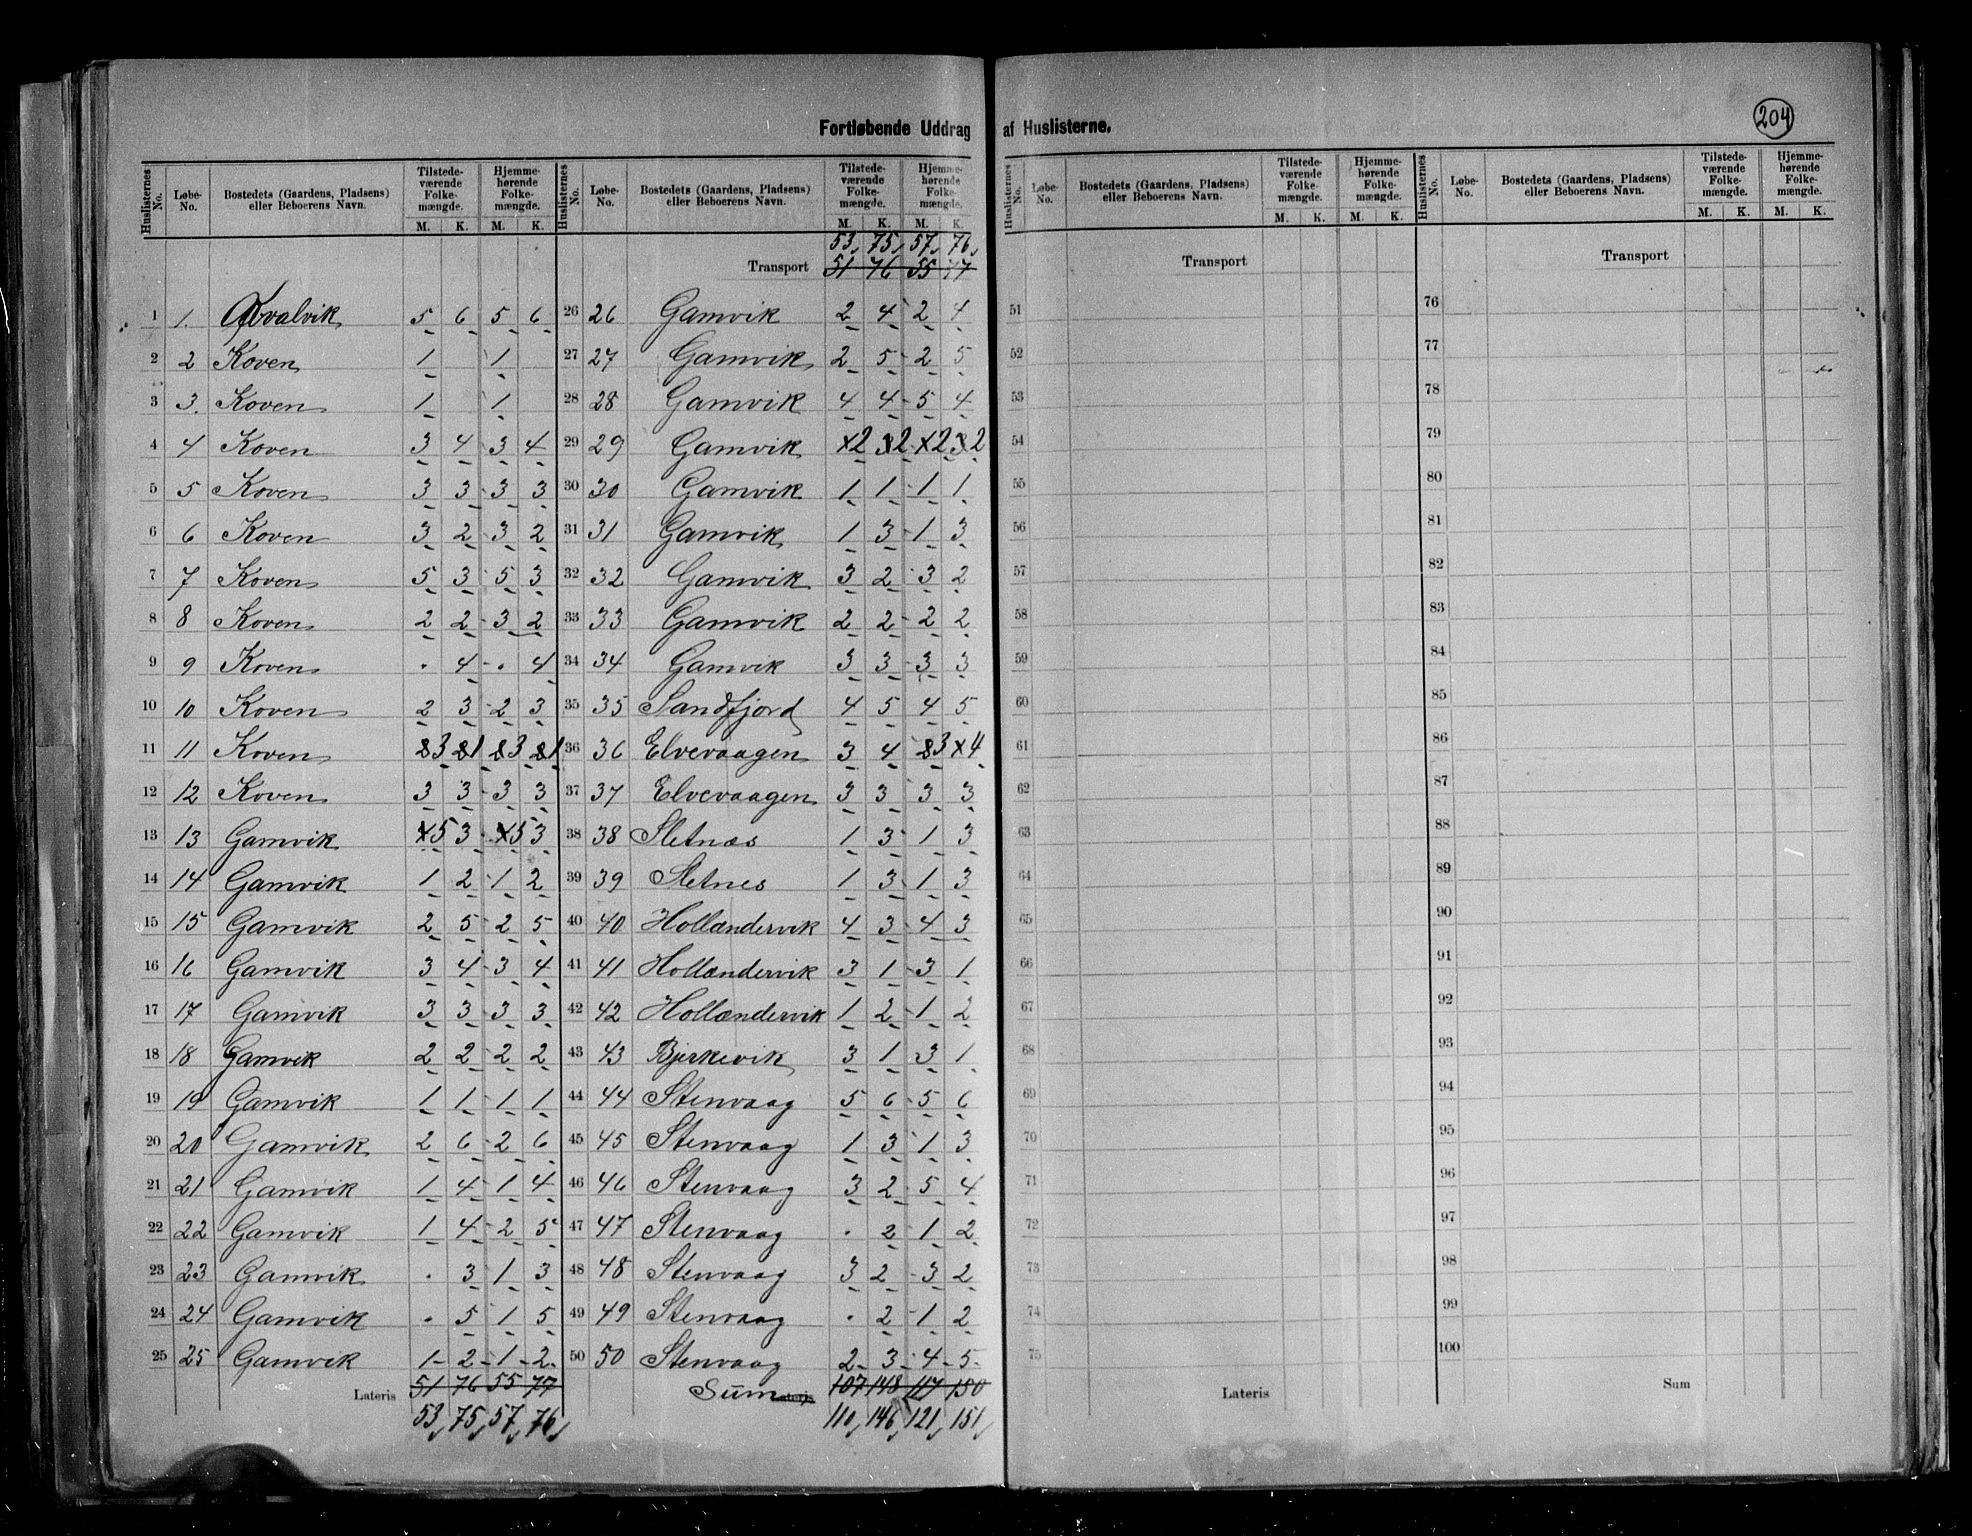 204
Fortløbende Uddrag af Huslisterne.
Huslisternes No. Løbe-No. Bostedets (Gaardens, Pladsens) eller Beboerens Navn. Tilstedeværende Folkemængde. M. K. Hjemmehørende Folkemængde. M. K.
Huslisternes No. Løbe-No. Bostedets (Gaardens, Pladsens) eller Beboerens Navn. Tilstedeværende Folkemængde. M. K. Hjemmehørende Folkemængde. M. K.
1 1. Kvalvik 5 6 5 6
2 2 Koven 1 1
3 3. Koven 1 1
4 4 Koven 3 4 3 4
5 5 Koven 3 3 3 3
6 6 Koven 3 2 3 2
7 7 Koven 5 3 5 3
8 8 Koven 2 2 3 2
9 9 Koven . 4 . 4
10 10 Koven 2 3 2 3
11 11 Koven 3 1 3 1
12 12 Koven 3 3 3 3
13 13 Gamvik 5 3 5 3
14 14 Gamvik 1 2 1 2
15 15 Gamvik 2 5 2 5
16 16 Gamvik 3 4 3 4
17 17 Gamvik 3 3 3 3
18 18 Gamvik 2 2 2 2
19 19 Gamvik 1 1 1 1
20 20 Gamvik 2 6 2 6
21 21 Gamvik 1 4 1 4
22 22 Gamvik 1 4 2 5
23 23 Gamvik . 3 1 3
24 24 Gamvik . 5 1 5
25 25 Gamvik 1 2 1 2
Lateris 51 76 55 77
53, 75, 57, 76,
53, 75, 57, 76,
Transport 51 76 55 77
26 26 Gamvik 2 4 2 4
27 27 Gamvik 2 5 2 5
28 28 Gamvik 4 4 5 4
29 29 Gamvik 2 2 2 2
30 30 Gamvik 1 1 1 1
31 31 Gamvik 1 3 1 3
32 32 Gamvik 3 2 3 2
33 33 Gamvik 2 2 2 2
34 34 Gamvik 3 3 3 3
35 35 Sandfjord 4 5 4 5
36 36 Elvevaagen 3 4 3 4
37 37 Elvevaagen 3 3 3 3
38 38 Sletnæs 1 3 1 3
39 39 Sletnes 1 3 1 3
40 40 Hollændervik 4 3 4 3
41 41 Hollændervik 3 1 3 1
42 42 Hollændervik 1 2 1 2
43 43 Bjerkevik 3 1 3 1
44 44 Stenvaag 5 6 5 6
45 45 Stenvaag 1 3 1 3
46 46 Stenvaag 3 2 5 4
47 47 Stenvaag . 2 1 2
48 48 Stenvaag 3 2 3 2
49 49 Stenvaag . 2 1 2
50 50 Stenvaag 2 3 4 5
Sum Lateris 107 148 117 150
110, 146, 121, 151,
Huslisternes No. Løbe-No. Bostedets (Gaardens, Pladsens) eller Beboerens Navn. Tilstedeværende Folkemængde. M. K. Hjemmehørende Folkemængde. M. K.
Huslisternes No. Løbe-No. Bostedets (Gaardens, Pladsens) eller Beboerens Navn. Tilstedeværende Folkemængde. M. K. Hjemmehørende Folkemængde. M. K.
Transport
51
52
53
54
55
56
57
58
59
60
61
62
63
64
65
66
67
68
69
70
71
72
73
74
75
Lateris
Transport
76
77
78
79
80
81
82
83
84
85
86
87
88
89
90
91
92
93
94
95
96
97
98
99
100
Sum